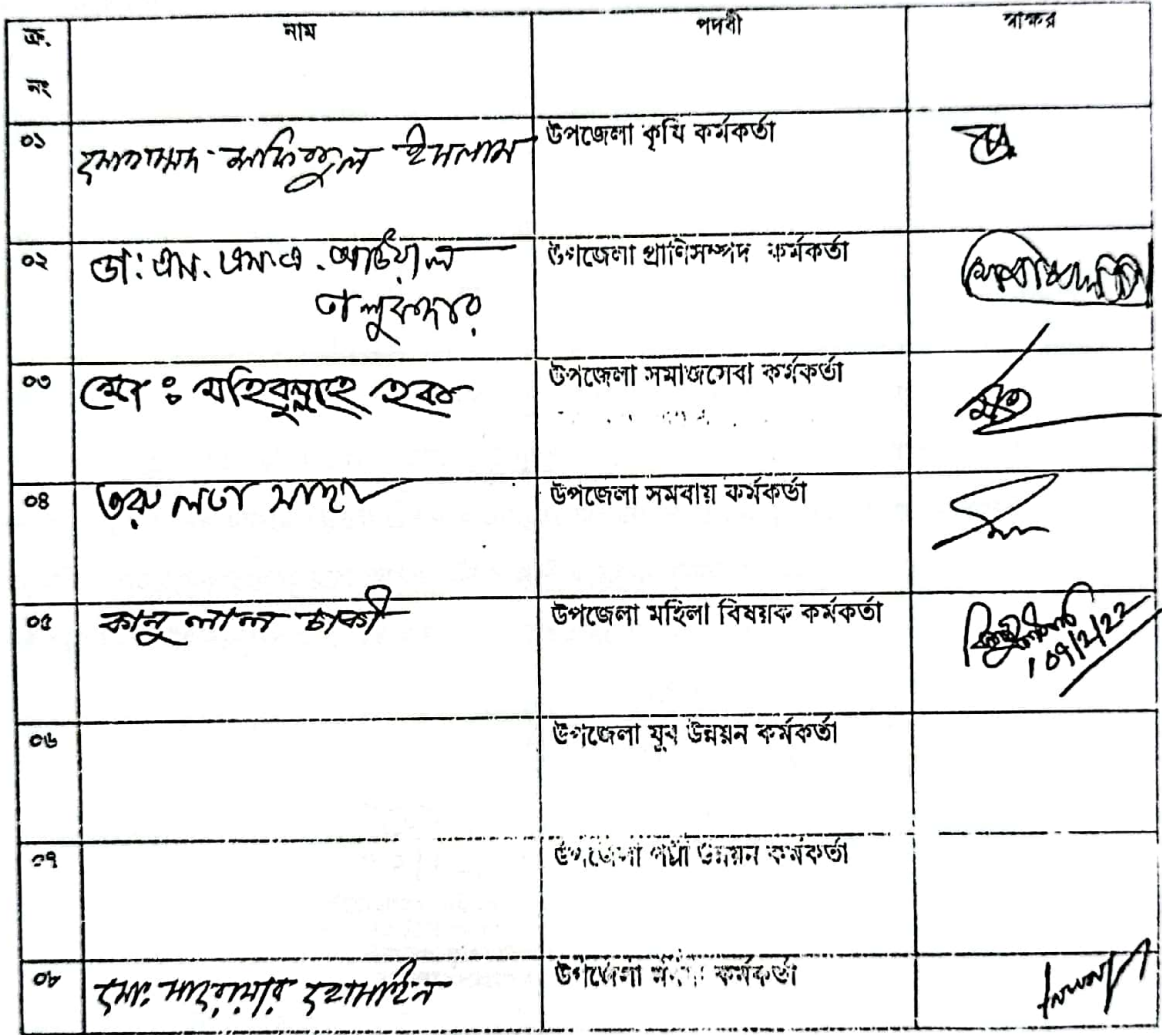 ক্র.
নং
নাম
পদবী
স্বাক্ষর
০১
মোহাম্মদ শফিকুল ইসলাম
উপজেলা কৃষি কর্মকর্তা
০২
ডা: এম. এম. এ. আউয়াল
তালুকদার
উপজেলা প্রাণিসম্পদ কর্মকর্তা
০৩
মো : মহিবুল্লাহ হক
উপজেলা সমাজসেবা কর্মকর্তা
০৪
তরু লতা সাহা
উপজেলা সমবায় কর্মকর্তা
০৫
কানু লাল
উপজেলা মহিলা বিষয়ক কর্মকর্তা
০৬
উপজেলা যুব উন্নয়ন কর্মকর্তা
০৭
উপজেলা পল্লী উন্নয়ন কর্মকর্তা
০৮
মো: হোসাইন
উপজেলা কর্মকর্তা